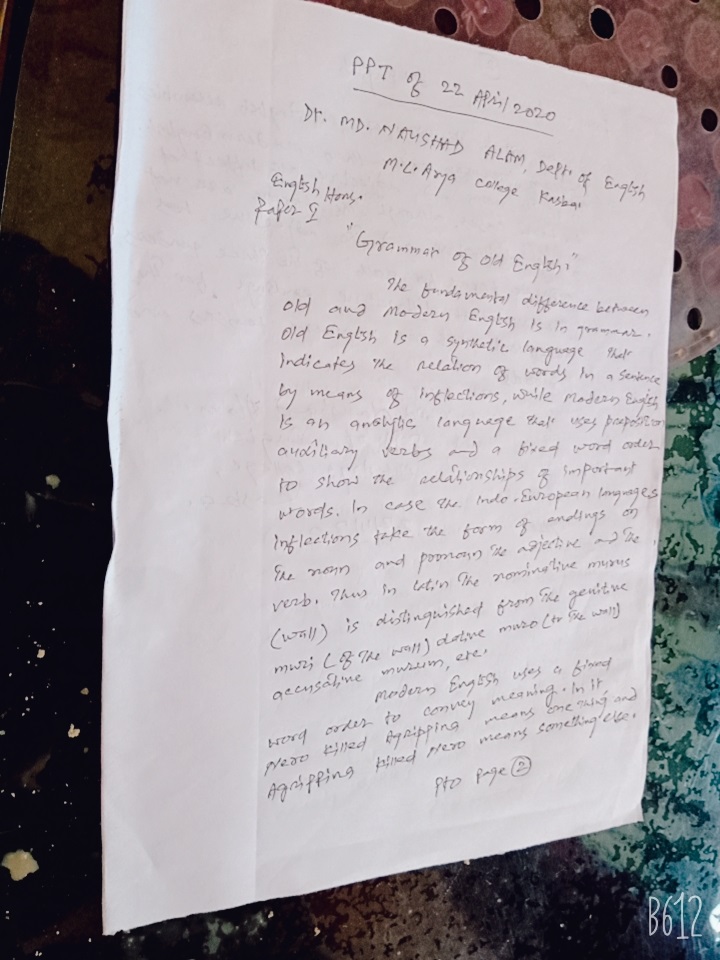 PPT of 22 April 2020
Dr. MD. NAUSHAD ALAM, Deptt. of English
M.L. Arya College Kasba.
English Hons.
Paper I
"Grammar of Old English."
The fundamental difference between
Old and Modern English is in grammar.
Old English is a synthetic language that
indicates the relation of words in a sentence
by means of inflections, while Modern English
is an analytic language that uses preposition
auxiliary verbs and a fixed word order
to show the relationships of important
words. In case the Indo-European languages
inflections take the form of endings on
the noun and pronoun the adjective and the
verb. Thus in Latin the nominative murus
(wall) is distinguished from the genitive
muri (of the wall) dative muro (to the wall)
accusative murum, etc.
Modern English uses a fixed
word order to convey meaning. In it
Nero killed Agrippina means one thing and
Agrippina killed Nero means something else.
PTO page 2
B612